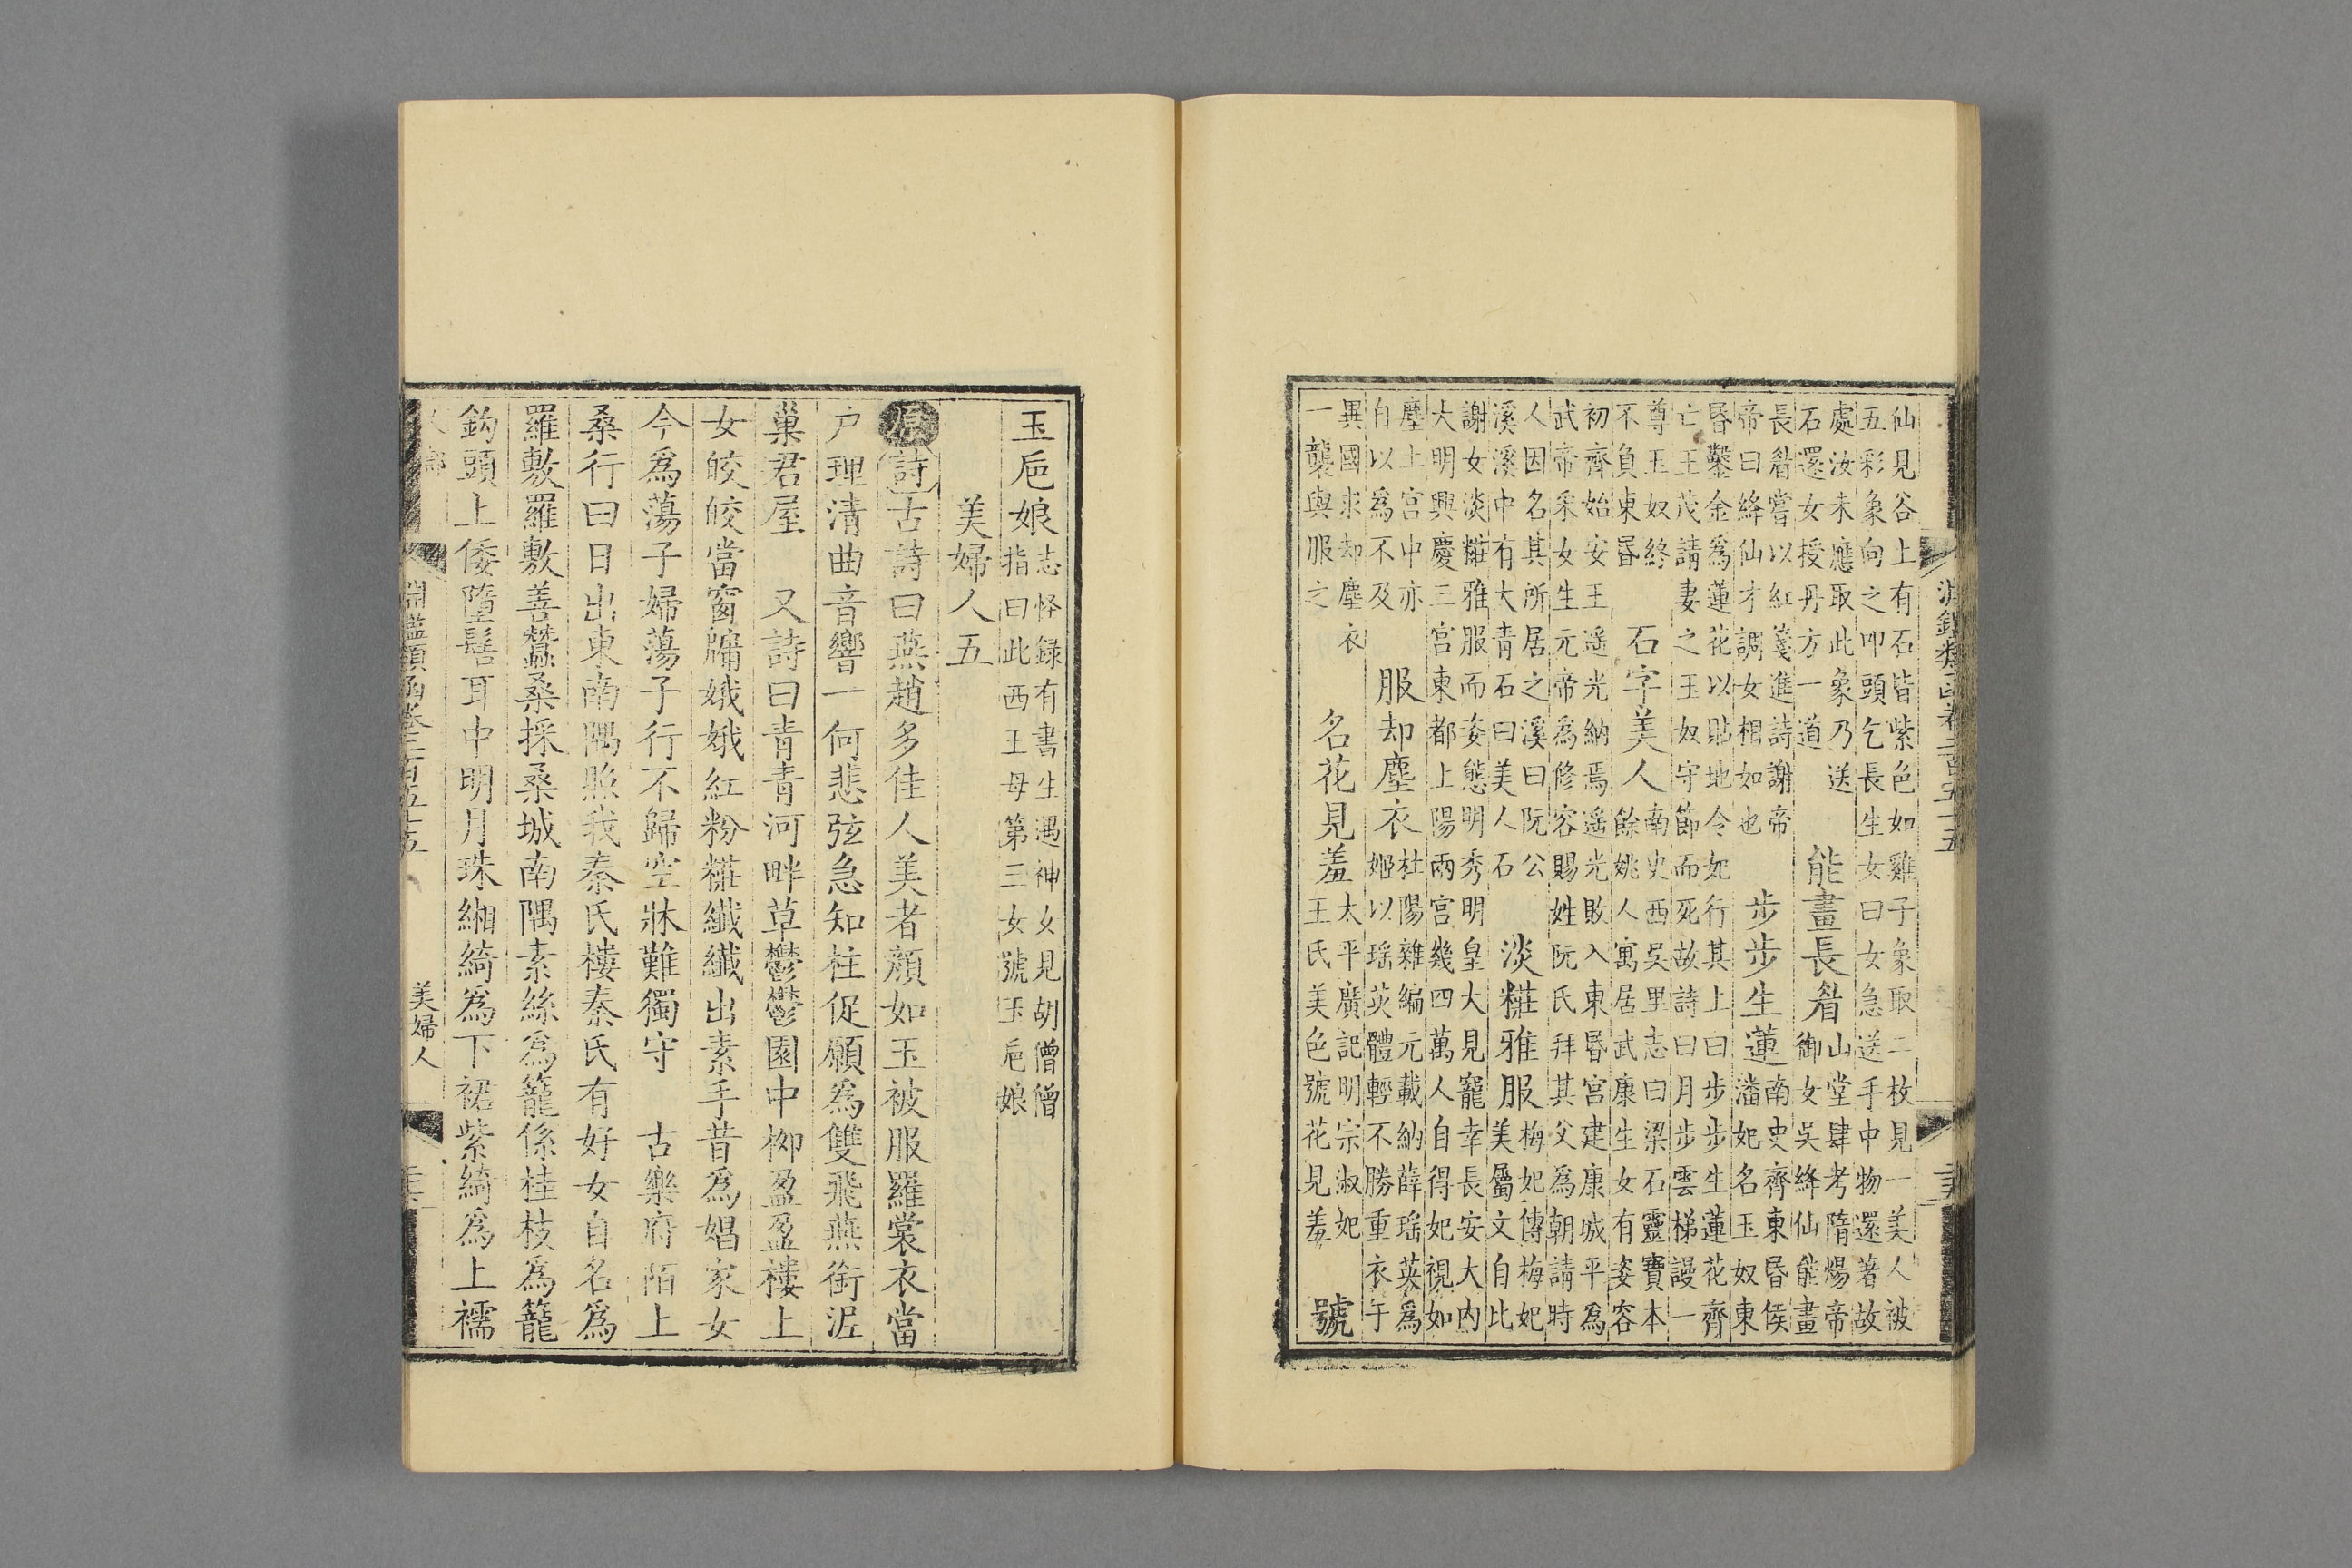 仙見谷上有石皆紫色如雞子象取二枚見一美人被
五彩象向之叩頭乞長生女曰女急送手中物還著故
處汝未應取此象乃送
石還女授丹方一道
能畫長眉
山堂肆考隋煬帝
御女吳絳仙能畫
長眉嘗以紅箋進詩謝帝
帝曰絳仙才調女相如也
步步生蓮
南史齊東昏侯
潘妃名玉奴東
昏鑿金爲蓮花以貼地令妃行其上曰步步生蓮花齊
亡王茂請妻之玉奴守節而死故詩曰月步雲梯謾一
尊玉奴終
不負東昏
石字美人
南史西吳里志曰梁石靈寶本
餘姚人寓居武康生女有姿容
初齊始安王遥光納焉遥光敗入東昏宮建康城平爲
武帝采女生元帝爲修容賜姓阮氏拜其父爲朝請時
人因名其所居之溪曰阮公
溪溪中有大青石曰美人石
淡糚雅服
梅妃傳梅妃
美屬文自比
謝女淡糚雅服而姿態明秀明皇大見寵幸長安大内
大明興慶三宮東都上陽兩宮幾四萬人自得妃視如
塵上宮中亦
自以爲不及
服却塵衣
杜陽雜編元載納薛瑶英爲
姬以瑶英體輕不勝重衣于
異國求却塵衣
一襲與服之
名花見羞
太平廣記明宗淑妃
王氏美色號花見羞
號
玉巵娘
志怪録有書生遇神女見胡僧僧
指曰此西王母第三女號玉巵娘
美婦人五
原詩古詩曰燕趙多佳人美者顔如玉被服羅裳衣當
户理清曲音響一何悲弦急知柱促願爲雙飛燕銜泥
巢君屋　又詩曰青青河畔草鬱鬱園中栁盈盈樓上
女皎皎當窗牖娥娥紅粉糚纖纖出素手昔爲娼家女
今爲蕩子婦蕩子行不歸空牀難獨守　古樂府陌上
桑行曰日出東南隅照我秦氏樓秦氏有好女自名爲
羅敷羅敷善蠶桑採桑城南隅素絲爲籠係桂枝爲籠
鈎頭上倭墮髻耳中明月珠緗綺爲下裙紫綺爲上襦
淵鑑類函卷二百五十五
美婦人